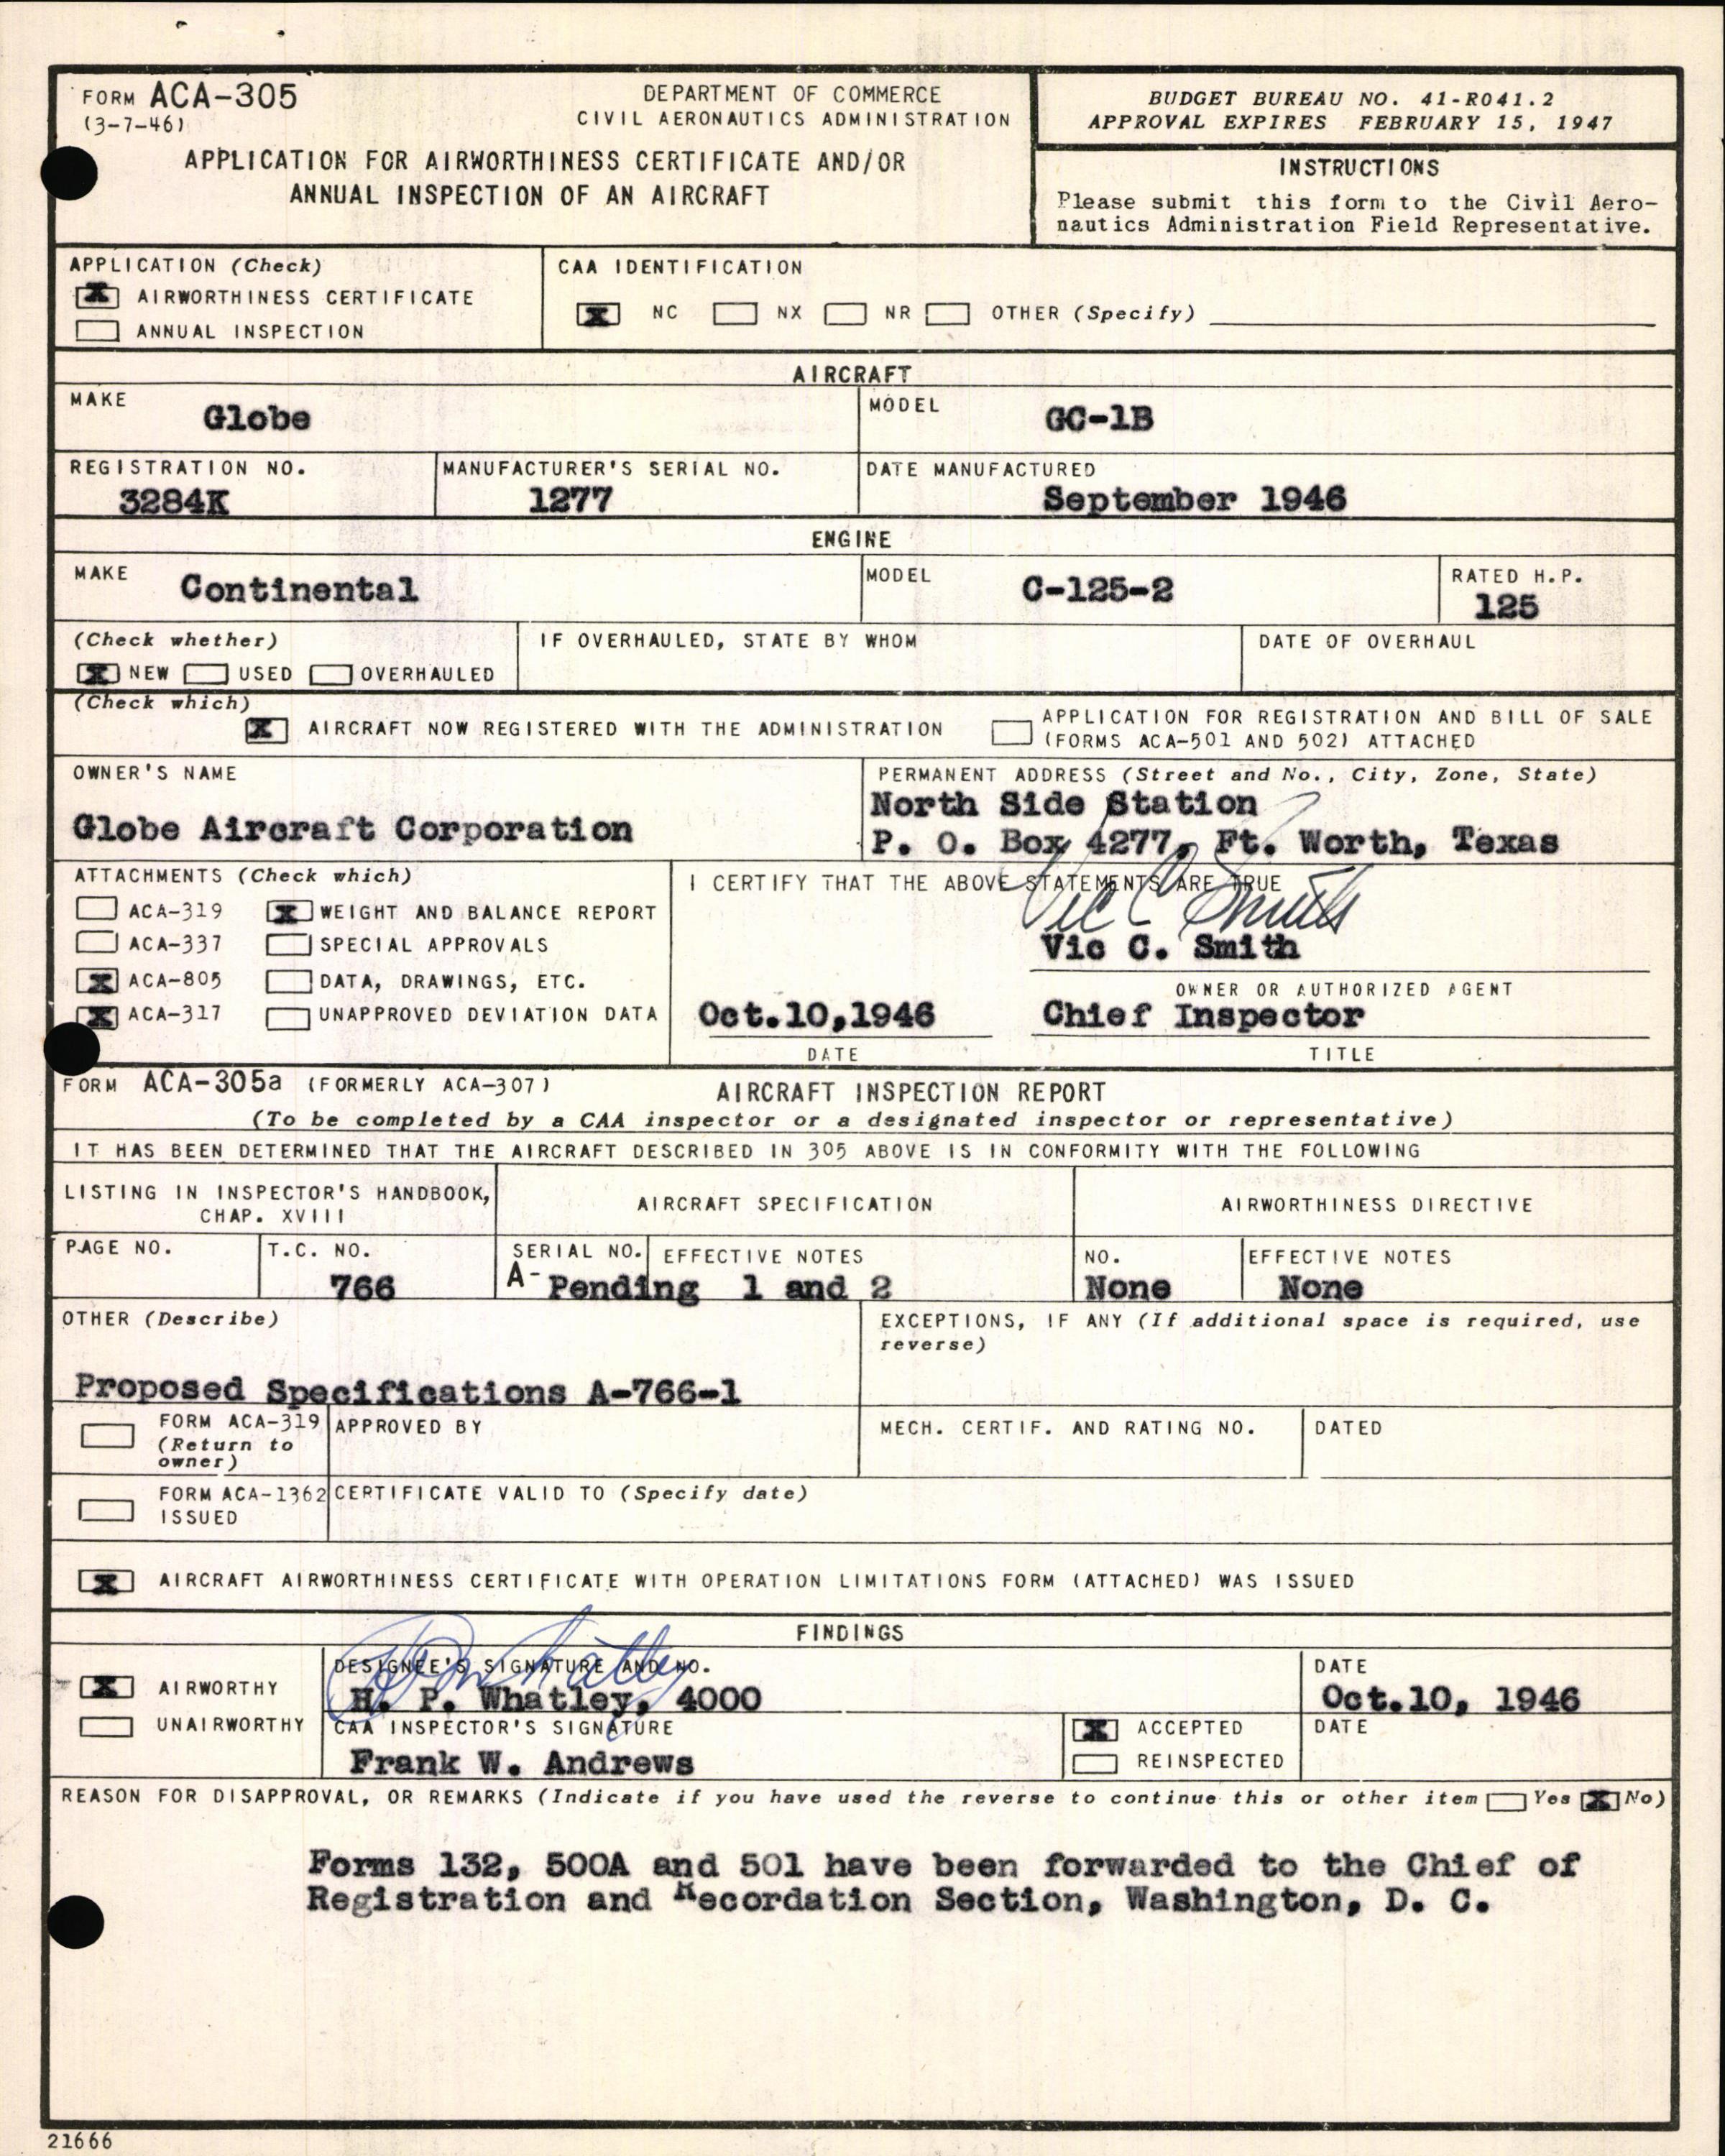 FORM ACA-305
(3-7-46)
DEPARTMENT OF COMMERCE
CIVIL AERONAUTICS ADMINISTRATION
APPLICATION FOR AIRWORTHINESS CERTIFICATE AND/OR
ANNUAL INSPECTION OF AN AIRCRAFT
BUDGET BUREAU NO. 41-R041.2
APPROVAL EXPIRES FEBRUARY 15, 1947
INSTRUCTIONS
Please submit this form to the Civil Aero-
nautics Administration Field Representative.
APPLICATION (Check)
X AIRWORTHINESS CERTIFICATE
ANNUAL INSPECTION
CAA IDENTIFICATION
X NC NX NR OTHER (Specify)
AIRCRAFT
MAKE
Globe
MODEL
GC-1B
REGISTRATION NO.
3284K
MANUFACTURER'S SERIAL NO.
1277
DATE MANUFACTURED
September 1946
ENGINE
MAKE
Continental
MODEL
C-125-2
RATED H.P.
125
(Check whether)
X NEW USED OVERHAULED
IF OVERHAULED, STATE BY WHOM
DATE OF OVERHAUL
(Check which)
X AIRCRAFT NOW REGISTERED WITH THE ADMINISTRATION
APPLICATION FOR REGISTRATION AND BILL OF SALE
(FORMS ACA-501 AND 502) ATTACHED
OWNER'S NAME
Globe Aircraft Corporation
PERMANENT ADDRESS (Street and No., City, Zone, State)
North Side Station
P. O. Box 4277, Ft. Worth, Texas
ATTACHMENTS (Check which)
ACA-319 X WEIGHT AND BALANCE REPORT
ACA-337 SPECIAL APPROVALS
X ACA-805 DATA, DRAWINGS, ETC.
X ACA-317 UNAPPROVED DEVIATION DATA
I CERTIFY THAT THE ABOVE STATEMENTS ARE TRUE
Vic C Smith
Vic C. Smith
OWNER OR AUTHORIZED AGENT
Oct.10,1946 Chief Inspector
DATE TITLE
FORM ACA-305a (FORMERLY ACA-307) AIRCRAFT INSPECTION REPORT
(To be completed by a CAA inspector or a designated inspector or representative)
IT HAS BEEN DETERMINED THAT THE AIRCRAFT DESCRIBED IN 305 ABOVE IS IN CONFORMITY WITH THE FOLLOWING
LISTING IN INSPECTOR'S HANDBOOK,
CHAP. XVIII
AIRCRAFT SPECIFICATION
AIRWORTHINESS DIRECTIVE
PAGE NO.
T.C. NO.
766
SERIAL NO. EFFECTIVE NOTES
A- Pending 1 and 2
NO.
None
EFFECTIVE NOTES
None
OTHER (Describe)
Proposed Specifications A-766-1
EXCEPTIONS, IF ANY (If additional space is required, use
reverse)
FORM ACA-319
(Return to
owner)
APPROVED BY
MECH. CERTIF. AND RATING NO.
DATED
FORM ACA-1362
ISSUED
CERTIFICATE VALID TO (Specify date)
X AIRCRAFT AIRWORTHINESS CERTIFICATE WITH OPERATION LIMITATIONS FORM (ATTACHED) WAS ISSUED
FINDINGS
X AIRWORTHY
UNAIRWORTHY
DESIGNEE'S SIGNATURE AND NO.
H P Whatley
H. P. Whatley, 4000
DATE
Oct.10, 1946
CAA INSPECTOR'S SIGNATURE
Frank W. Andrews
X ACCEPTED
REINSPECTED
DATE
REASON FOR DISAPPROVAL, OR REMARKS (Indicate if you have used the reverse to continue this or other item Yes X No)
Forms 132, 500A and 501 have been forwarded to the Chief of
Registration and Recordation Section, Washington, D. C.
21666